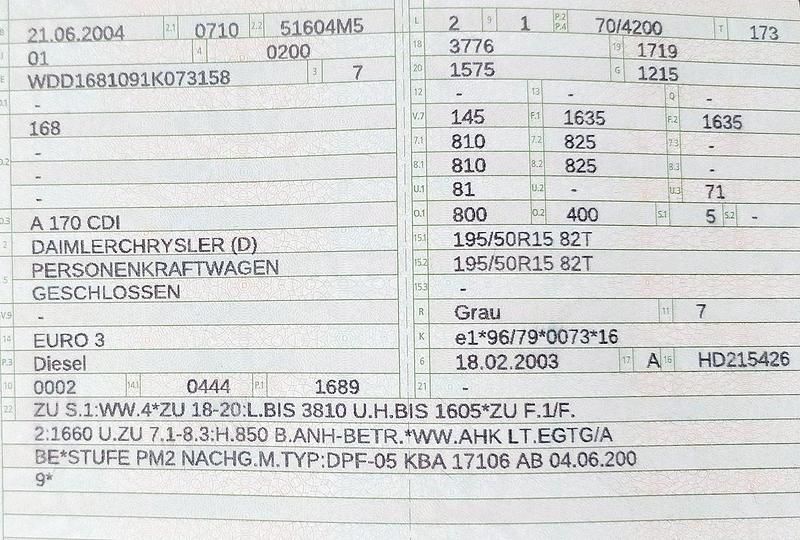 B 21.06.2004 2.1 0710 2.2 51604M5
J 01 4 0200
E WDD1681091K073158 3 7
D.1 -
168
-
D.2 -
-
D.3 A 170 CDI
2 DAIMLERCHRYSLER (D)
PERSONENKRAFTWAGEN
5 GESCHLOSSEN
V.9 -
14 EURO 3
P.3 Diesel
10 0002 14.1 0444 P.1 1689
L 2 9 1 P.2 P.4 70/4200 T 173
18 3776 19 1719
20 1575 G 1215
12 - 13 - Q -
V.7 145 F.1 1635 F.2 1635
7.1 810 7.2 825 7.3 -
8.1 810 8.2 825 8.3 -
U.1 81 U.2 - U.3 71
O.1 800 O.2 400 S.1 5 S.2 -
15.1 195/50R15 82T
15.2 195/50R15 82T
15.3 -
R Grau 11 7
K e1*96/79*0073*16
6 18.02.2003 17 A 16 HD215426
21 -
22 ZU S.1:WW.4*ZU 18-20:L.BIS 3810 U.H.BIS 1605*ZU F.1/F.
2:1660 U.ZU 7.1-8.3:H.850 B.ANH-BETR.*WW.AHK LT.EGTG/A
BE*STUFE PM2 NACHG.M.TYP:DPF-05 KBA 17106 AB 04.06.200
9*